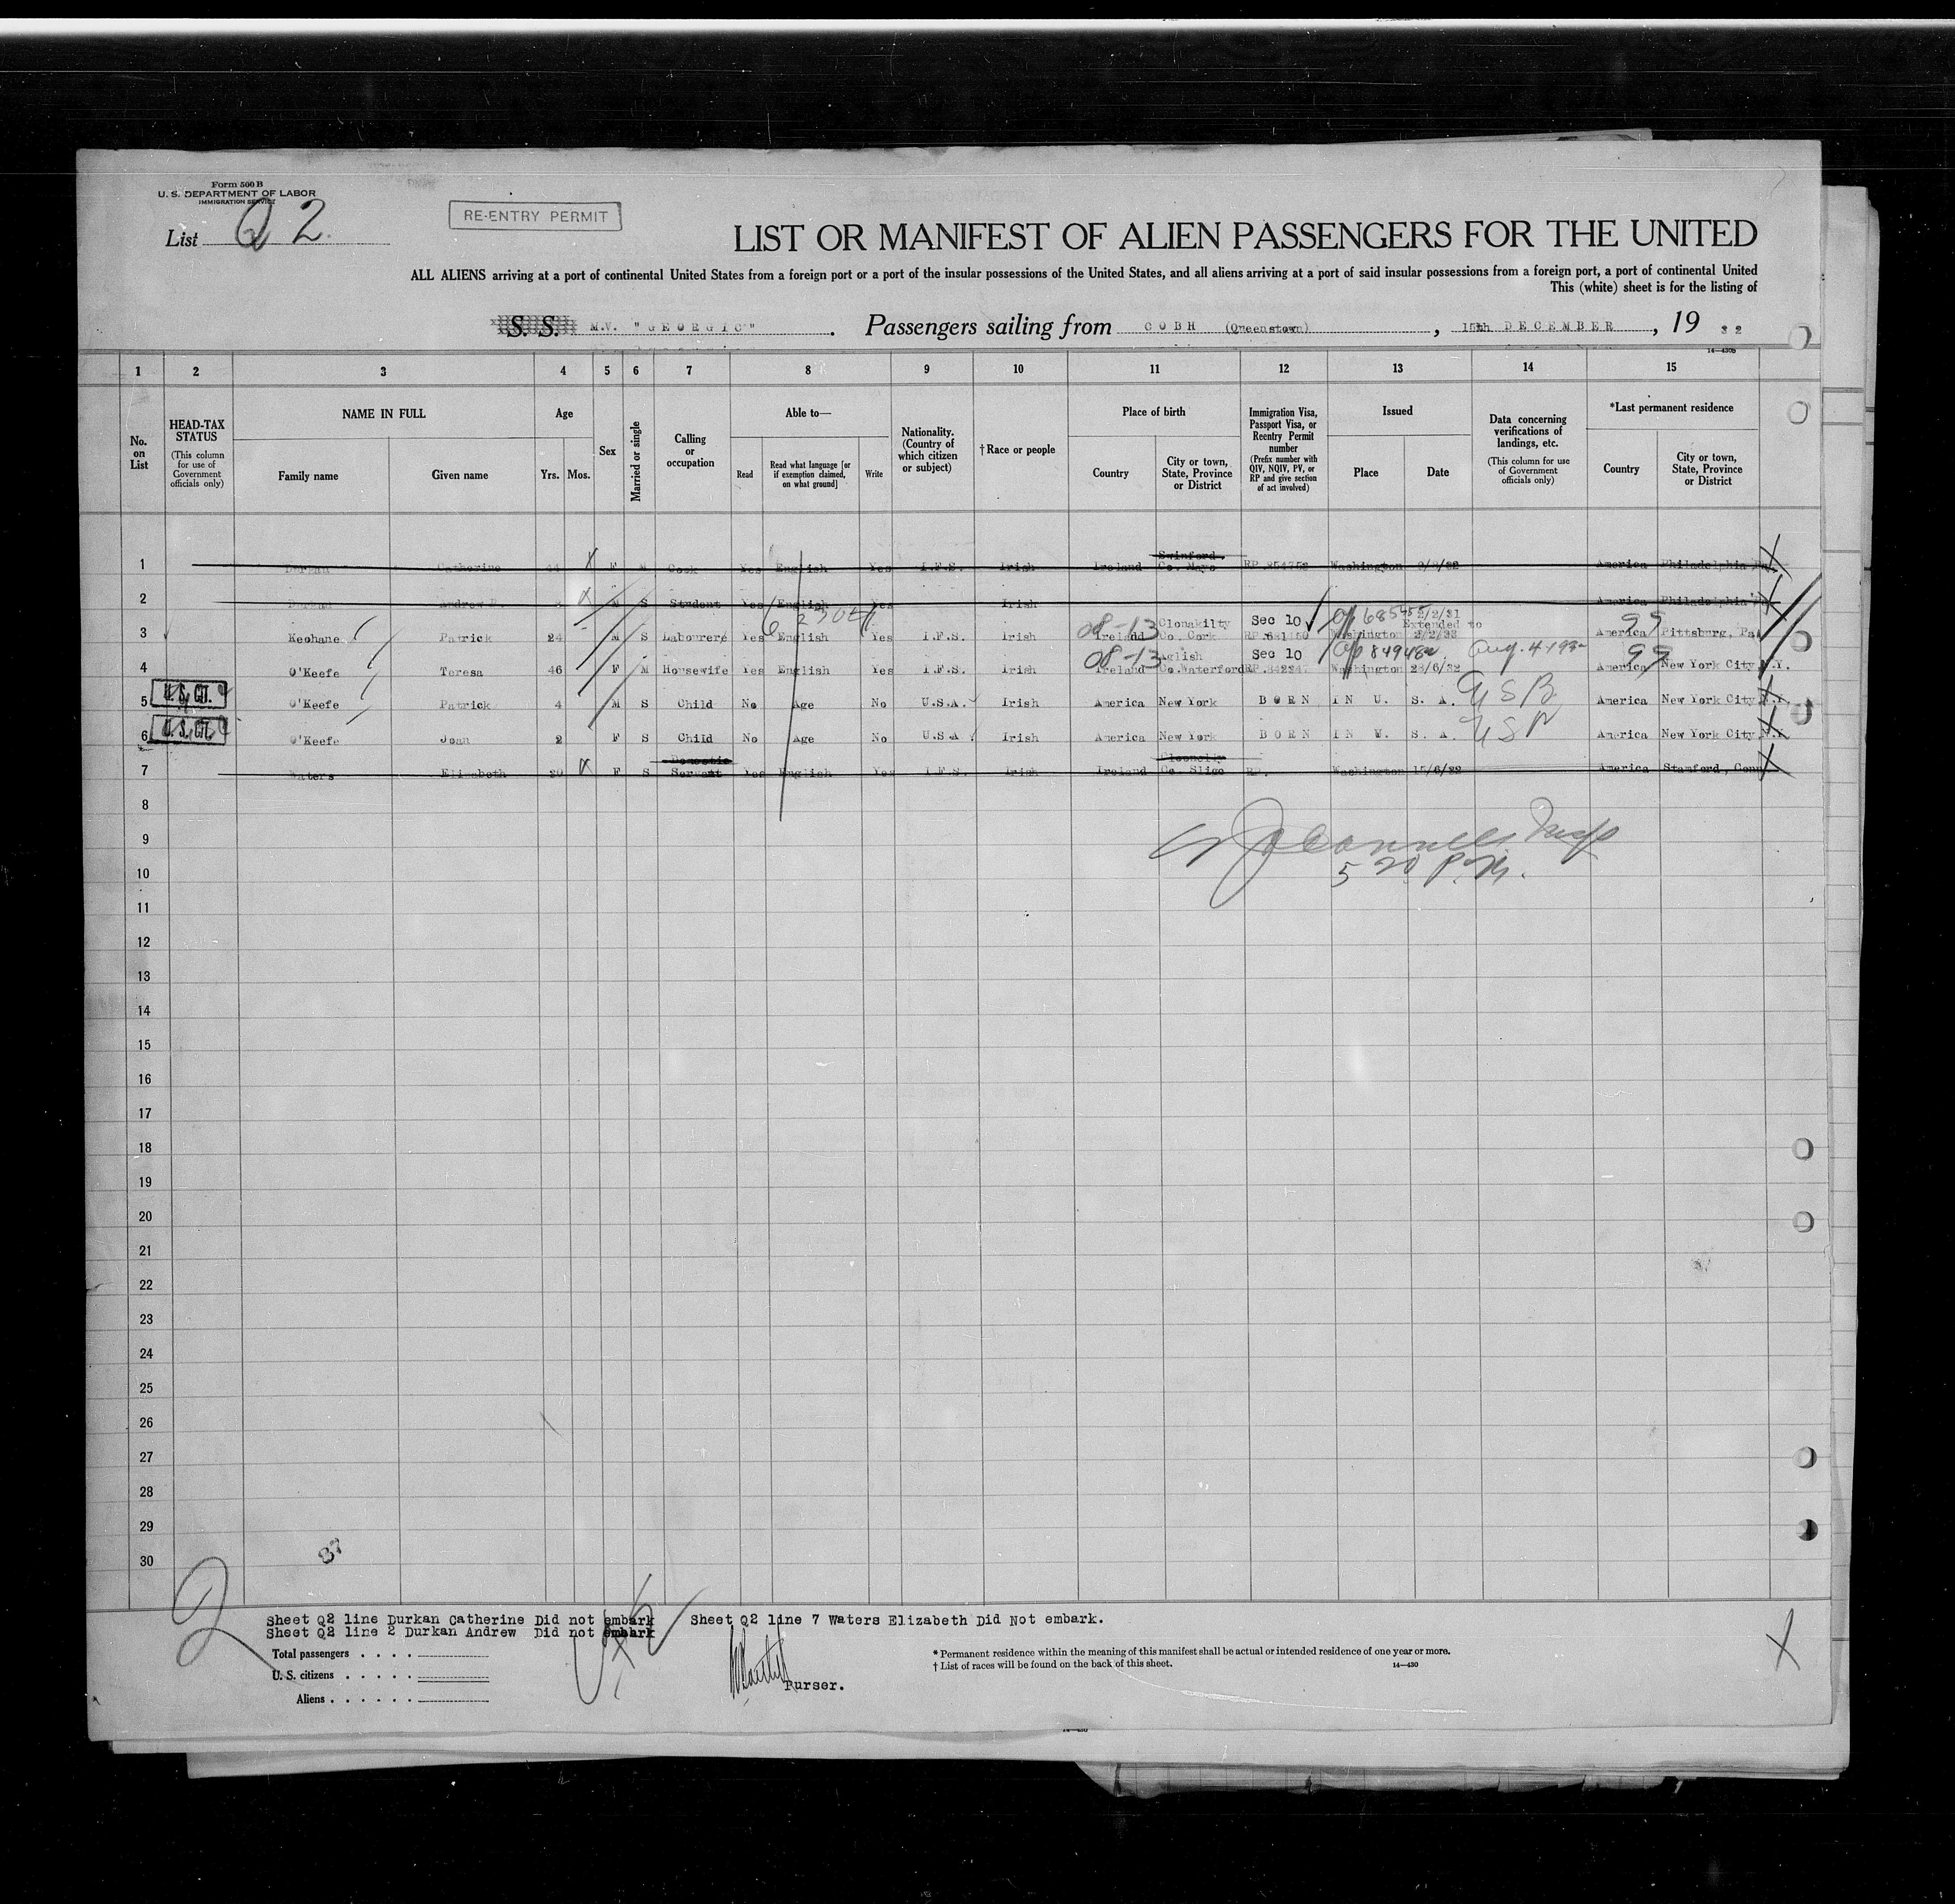 Form 500 B
U. S. DEPARTMENT OF LABOR
IMMIGRATION SERVICE
List Q 2
RE-ENTRY PERMIT
LIST OR MANIFEST OF ALIEN PASSENGERS FOR THE UNITED
ALL ALIENS arriving at a port of continental United States from a foreign port or a port of the insular possessions of the United States, and all aliens arriving at a port of said insular possessions from a foreign port, a port of continental United
This (white) sheet is for the listing of
S. S. M.V. "GEORGIC". Passengers sailing from COBH (Queenstown), 15th DECEMBER, 19 32
14—430B
1 2 3 4 5 6 7 8 9 10 11 12 13 14 15
No. on List
HEAD-TAX STATUS
(This column for use of Government officials only)
NAME IN FULL
Family name Given name
Age
Yrs. Mos.
Sex
Married or single
Calling or occupation
Able to—
Read Read what language [or if exemption claimed, on what ground] Write
Nationality. (Country of which citizen or subject)
† Race or people
Place of birth
Country City or town, State, Province or District
Immigration Visa, Passport Visa, or Reentry Permit number
(Prefix number with QIV, NQIV, PV, or RP and give section of act involved)
Issued
Place Date
Data concerning verifications of landings, etc.
(This column for use of Government officials only)
*Last permanent residence
Country City or town, State, Province or District
Swinford.
1 Durkan Catherine 44 F M Cook Yes English Yes I.F.S. Irish Ireland Co. Mayo Washington America Philadelphia Pa
2 Durkan Andrew M S Student Yes English Yes Irish America Philadelphia
Clonakilty Sec 10 2/2/31
Extended to
3 Keohane Patrick 24 M S Labourer Yes English Yes I.F.S. Irish 08-13 Ireland Co. Cork Washington 2/2/33 99 America Pittsburg, Pa.
Aglish Sec 10 Aug. 4 1932
4 O'Keefe Teresa 46 F M Housewife Yes English Yes I.F.S. Irish 08-13 Ireland Co. Waterford Washington 28/6/32 99 America New York City N.Y.
5 U. S. CIT. O'Keefe Patrick 4 M S Child No Age No U.S.A. Irish America New York BORN IN U. S. A. USB America New York City N.Y.
6 U. S. CIT. O'Keefe Joan 2 F S Child No Age No U.S.A Irish America New York BORN IN U. S. A. America New York City N.Y.
Domestic
7 Waters Elizabeth 20 F S Servant Yes English Yes I.F.S. Irish Ireland Co. Sligo RP. Washington 15/6/32 America Stamford, Conn
8
9
5 20 P.M.
10
11
12
13
14
15
16
17
18
19
20
21
22
23
24
25
26
27
28
29
30
87
Sheet Q2 line Durkan Catherine Did not embark Sheet Q2 line 7 Waters Elizabeth Did Not embark.
Sheet Q2 line 2 Durkan Andrew Did not embark
Total passengers . . . .
U. S. citizens . . . . .
Aliens . . . . . .
Purser.
* Permanent residence within the meaning of this manifest shall be actual or intended residence of one year or more.
† List of races will be found on the back of this sheet. 14—430